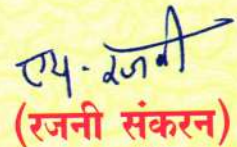 एस. रजनी
(रजनी संकरन)